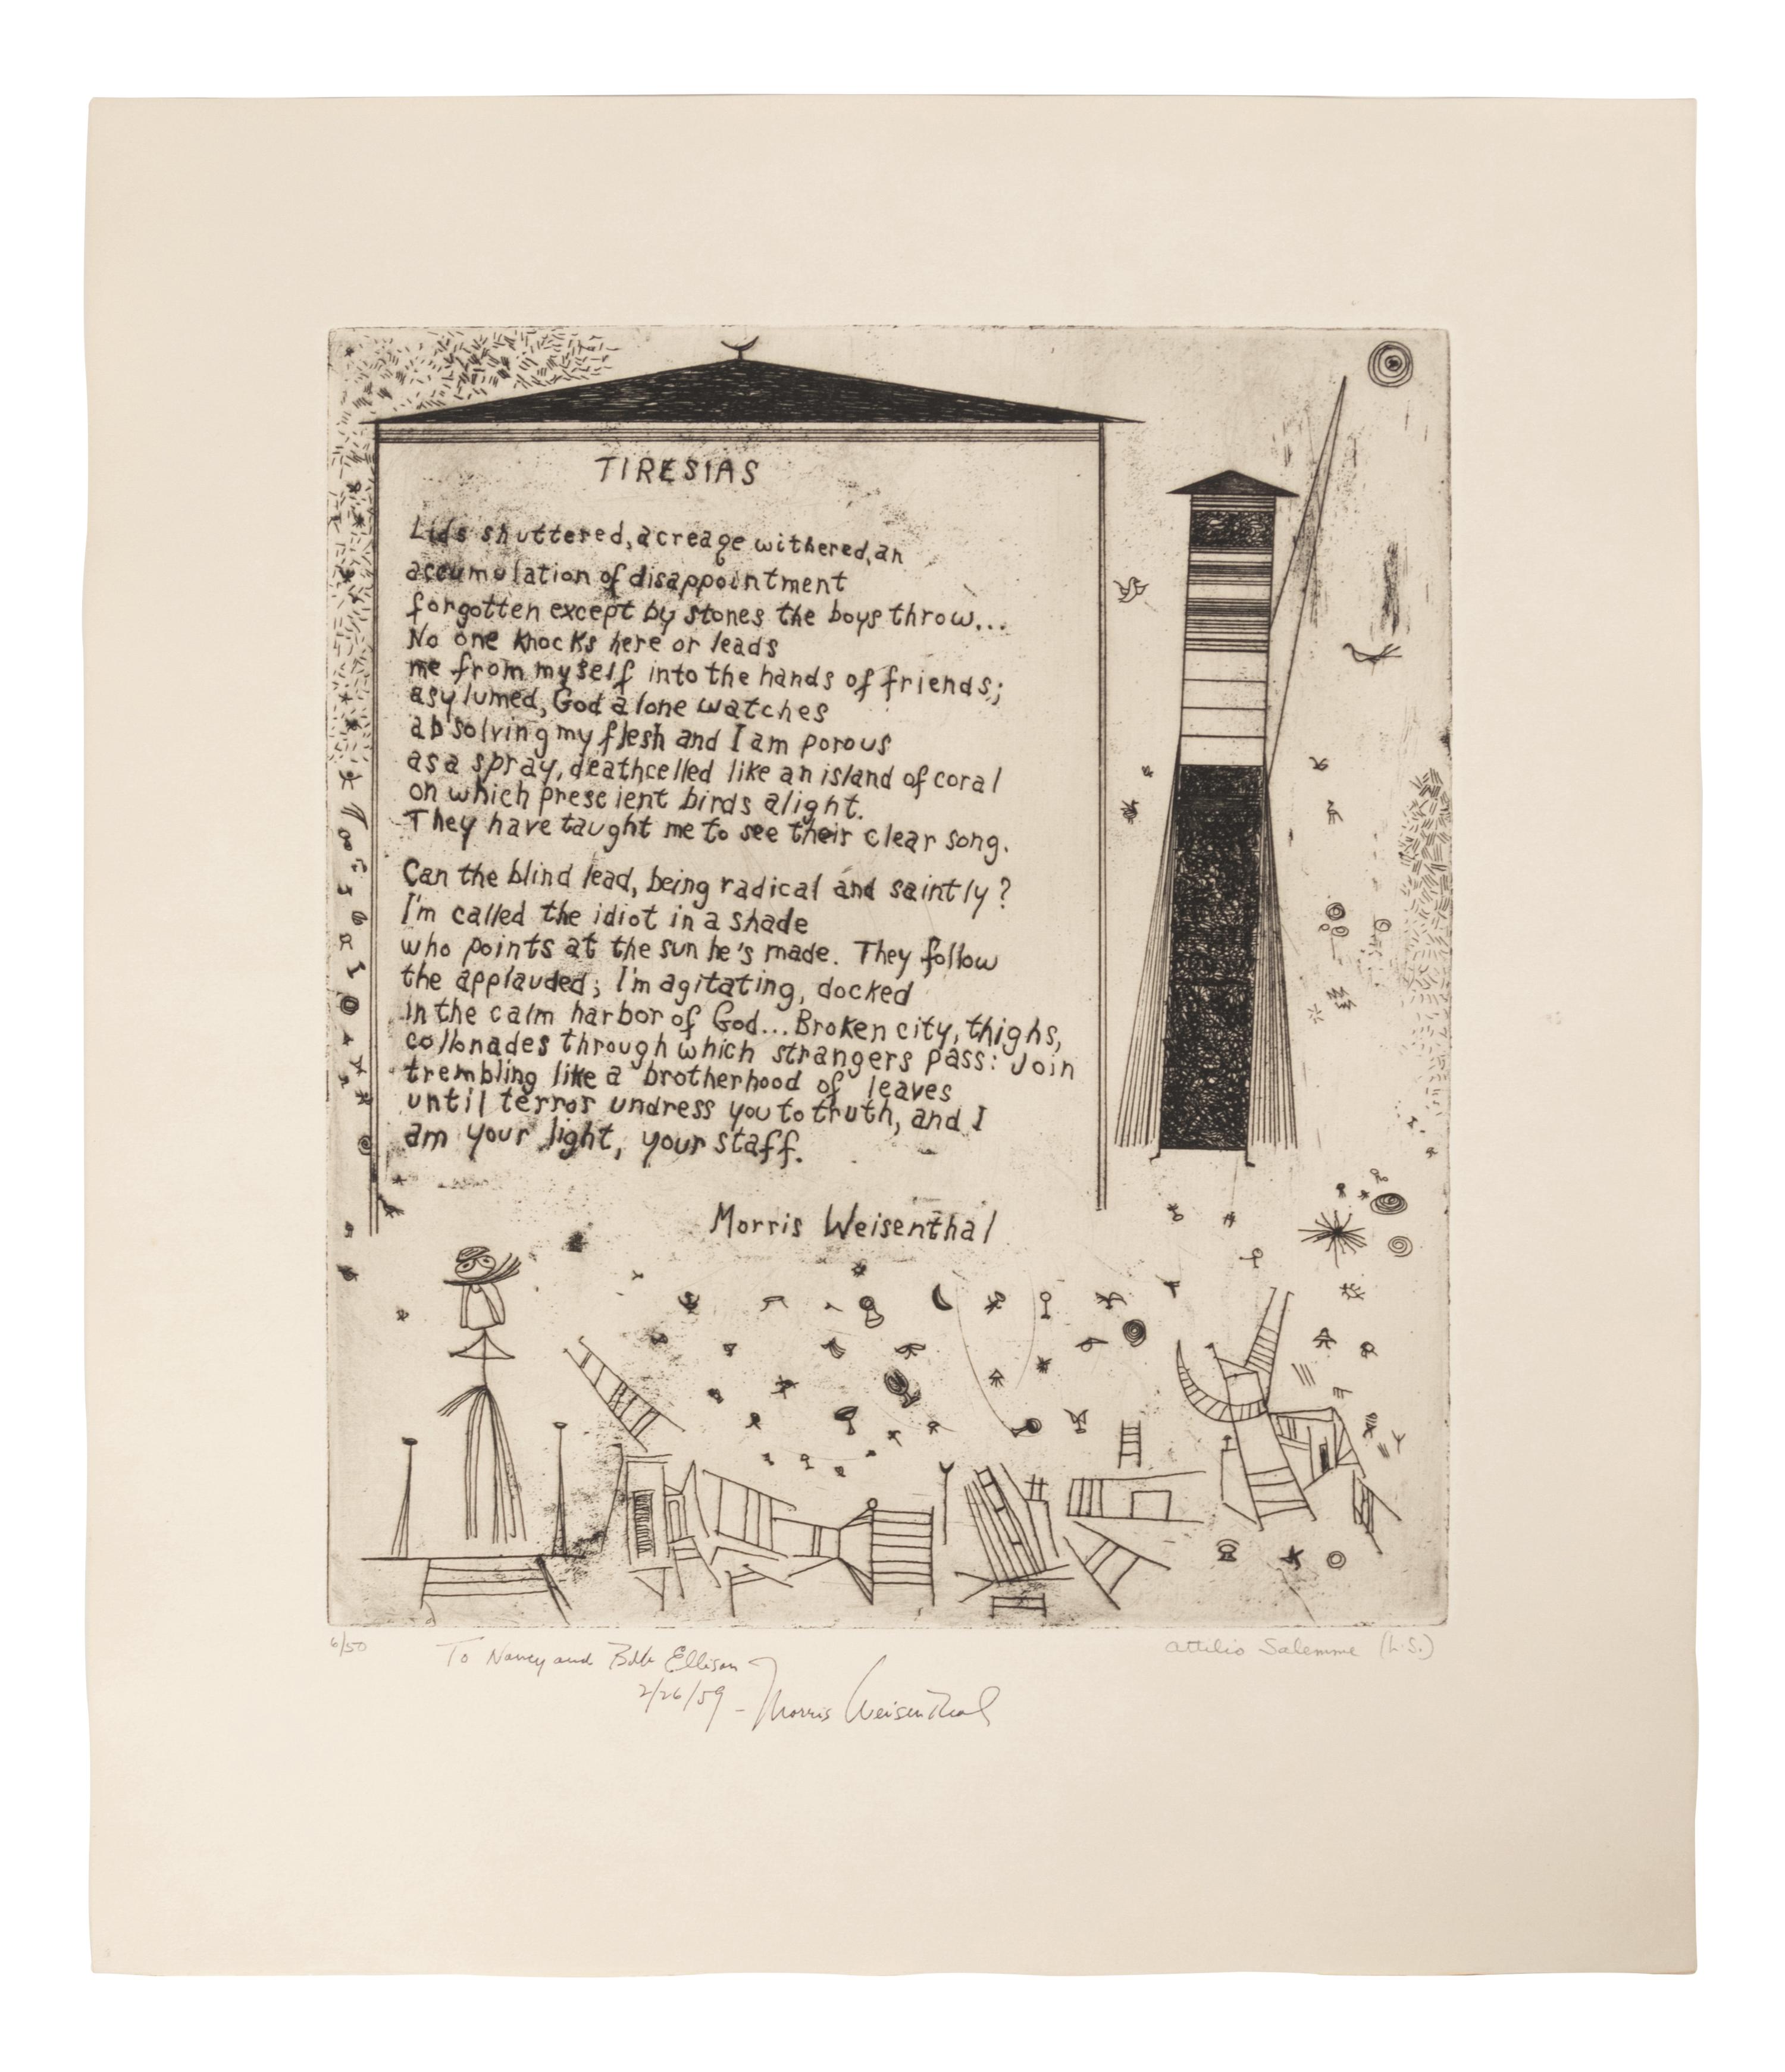 TIRESIAS
Lids shuttered, acreage withered, an
accumulation of disappointment
forgotten except by stones the boys throw...
No one knocks here or leads
me from myself into the hands of friends;
asylumed, God alone watches
absolving my flesh and I am porous
as a spray, deathcelled like an island of coral
on which prescient birds alight.
They have taught me to see their clear song.
Can the blind lead, being radical and saintly?
I'm called the idiot in a shade
who points at the sun he's made. They follow
the applauded; I'm agitating, docked
in the calm harbor of God... Broken city, thighs,
collonades through which strangers pass: Join
trembling like a brotherhood of leaves
until terror undress you to truth, and I
am your light, your staff.
Morris Weisenthal
6/50
To Nancy and Bob Ellison
2/26/59 - Morris Weisenthal
Attilio Salemme (L.S.)